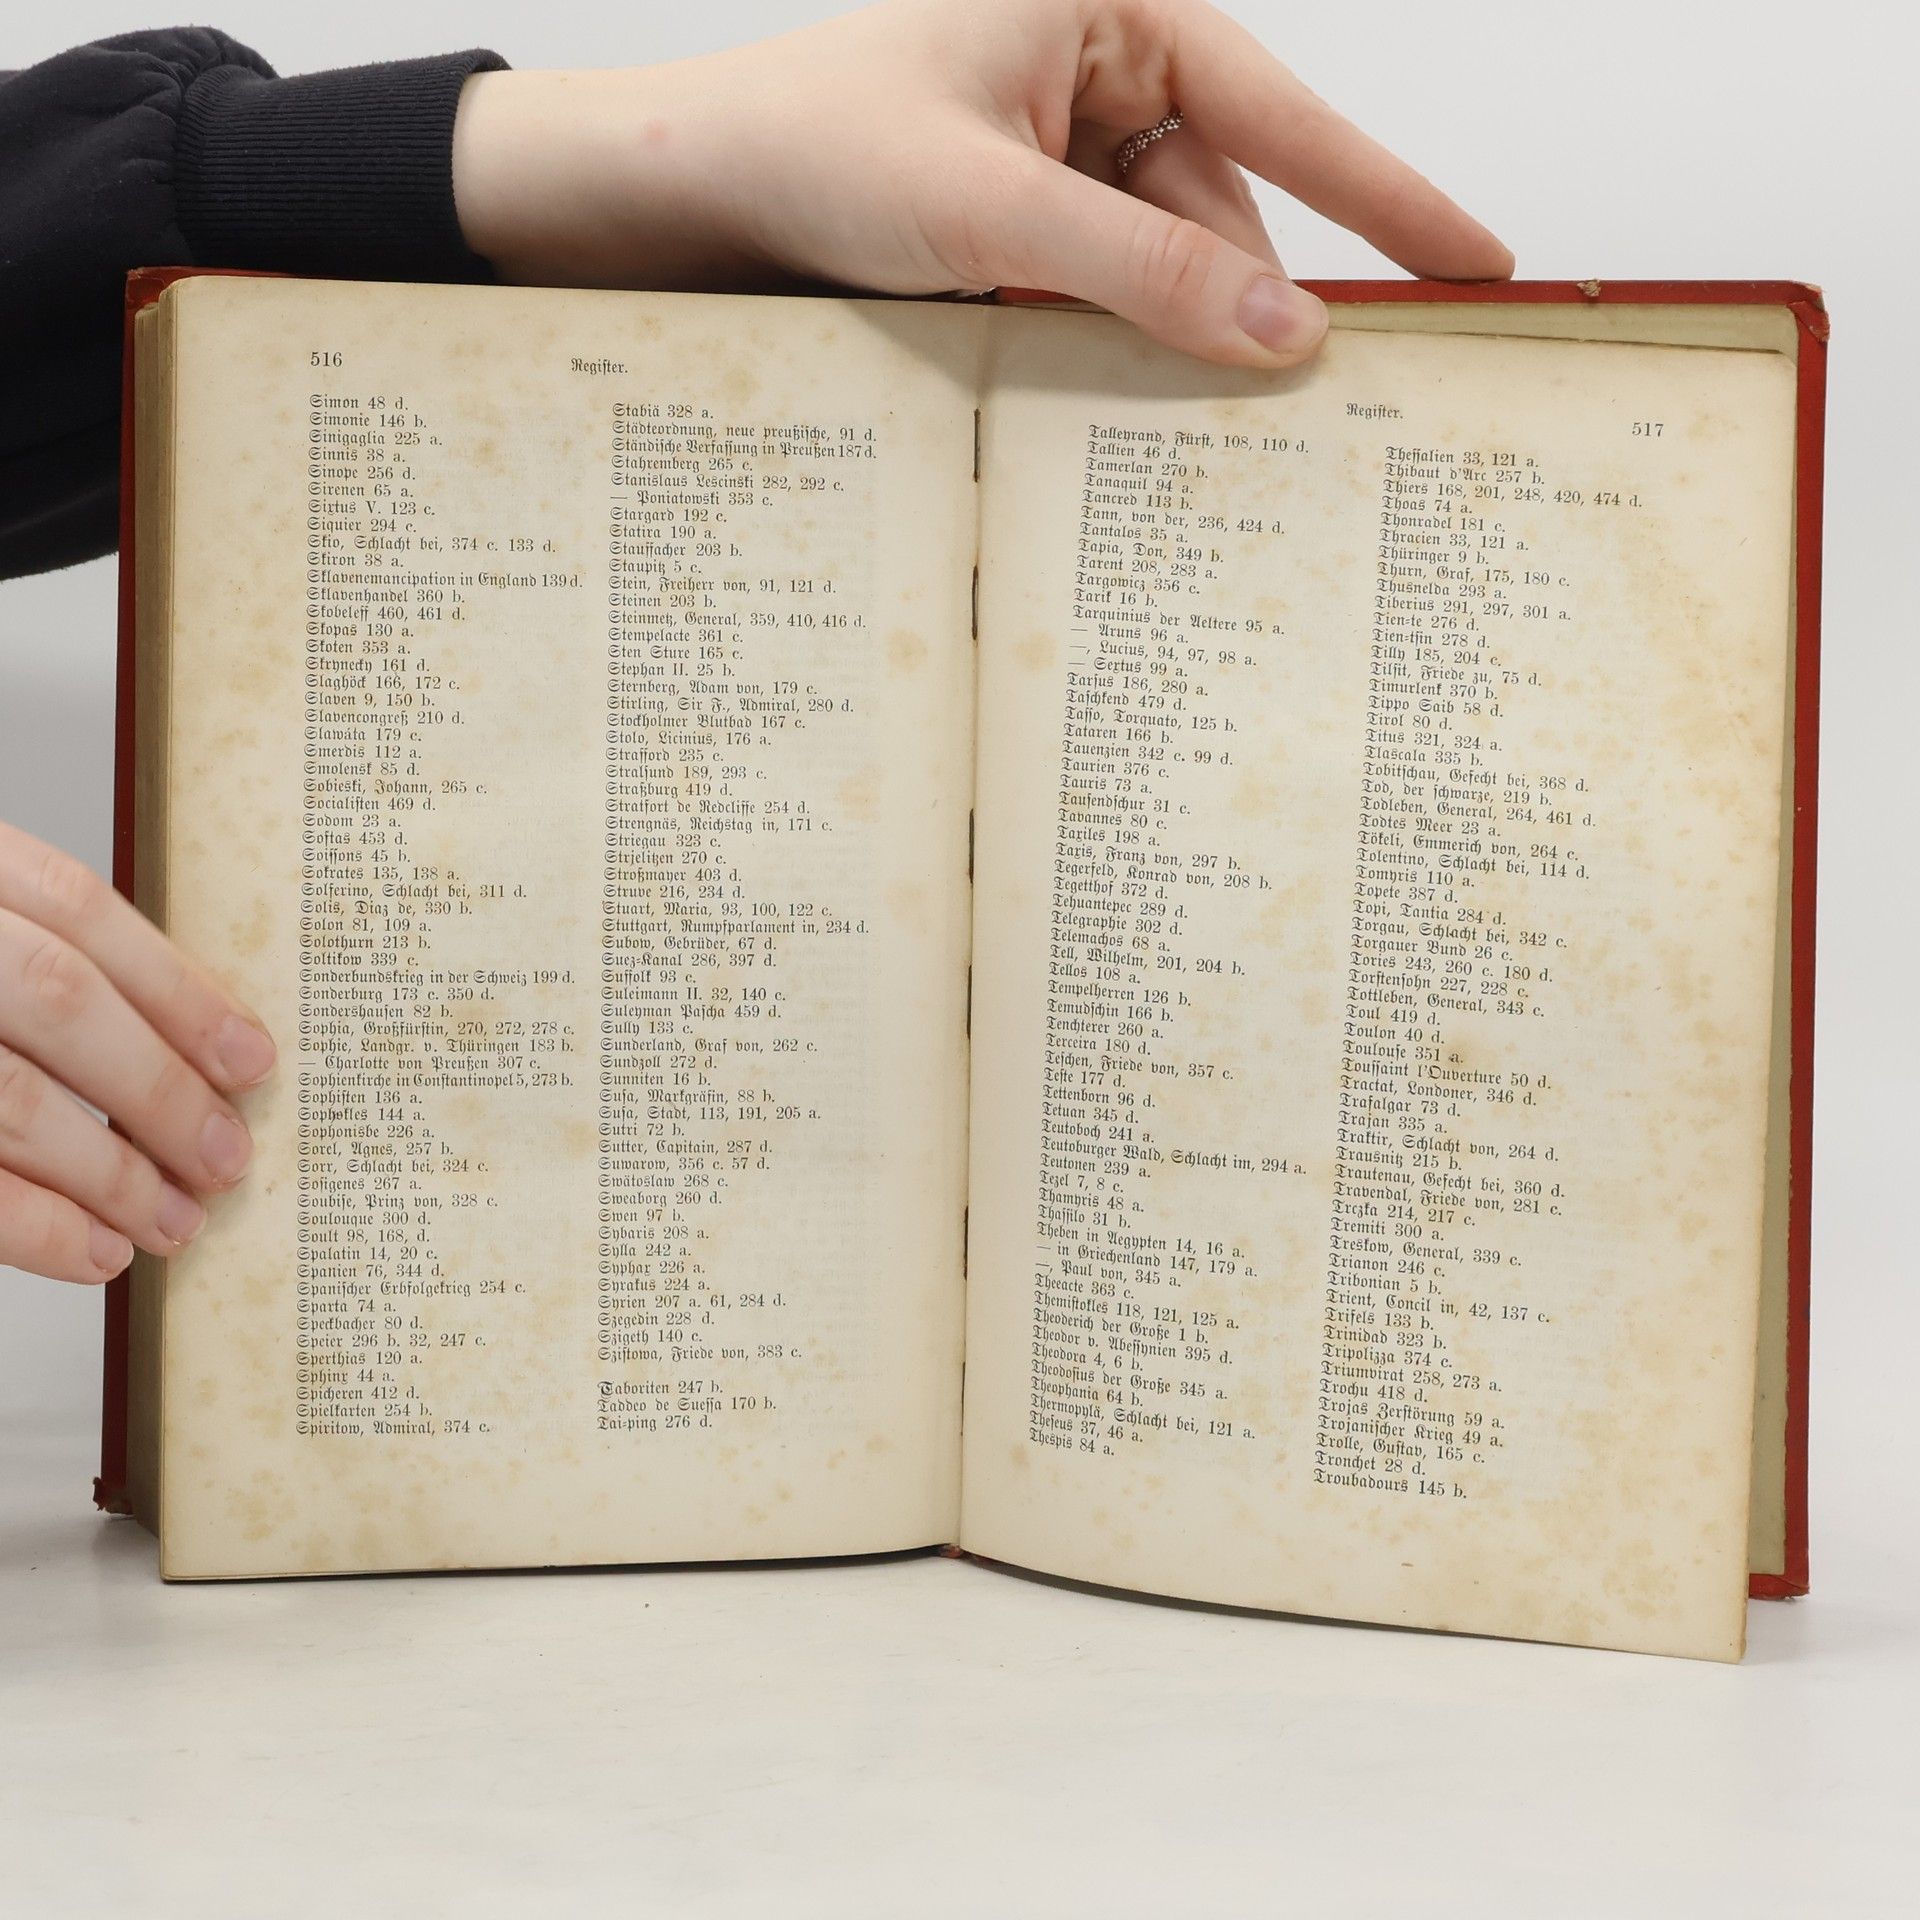 516
Register.
Simon 48 d.
Simonie 146 b.
Sinigaglia 225 a.
Sinnis 38 a.
Sinope 256 d.
Sirenen 65 a.
Sixtus V. 123 c.
Siquier 294 c.
Skio, Schlacht bei, 374 c. 133 d.
Skiron 38 a.
Sklavenemancipation in England 139 d.
Sklavenhandel 360 b.
Skobeleff 460, 461 d.
Skopas 130 a.
Skoten 353 a.
Skrynecky 161 d.
Slaghöck 166, 172 c.
Slaven 9, 150 b.
Slavencongreß 210 d.
Slawáta 179 c.
Smerdis 112 a.
Smolensk 85 d.
Sobieski, Johann, 265 c.
Socialisten 469 d.
Sodom 23 a.
Softas 453 d.
Soissons 45 b.
Sokrates 135, 138 a.
Solferino, Schlacht bei, 311 d.
Solis, Diaz de, 330 b.
Solon 81, 109 a.
Solothurn 213 b.
Soltikow 339 c.
Sonderbundskrieg in der Schweiz 199 d.
Sonderburg 173 c. 350 d.
Sondershausen 82 b.
Sophia, Großfürstin, 270, 272, 278 c.
Sophie, Landgr. v. Thüringen 183 b.
— Charlotte von Preußen 307 c.
Sophienkirche in Constantinopel 5, 273 b.
Sophisten 136 a.
Sophokles 144 a.
Sophonisbe 226 a.
Sorel, Agnes, 257 b.
Sorr, Schlacht bei, 324 c.
Sosigenes 267 a.
Soubise, Prinz von, 328 c.
Soulouque 300 d.
Soult 98, 168, d.
Spalatin 14, 20 c.
Spanien 76, 344 d.
Spanischer Erbfolgekrieg 254 c.
Sparta 74 a.
Speckbacher 80 d.
Speier 296 b. 32, 247 c.
Sperthias 120 a.
Sphinx 44 a.
Spicheren 412 d.
Spielkarten 254 b.
Spiritow, Admiral, 374 c.
Stabiä 328 a.
Städteordnung, neue preußische, 91 d.
Ständische Verfassung in Preußen 187 d.
Stahremberg 265 c.
Stanislaus Lescinski 282, 292 c.
— Poniatowski 353 c.
Stargard 192 c.
Statira 190 a.
Stauffacher 203 b.
Staupitz 5 c.
Stein, Freiherr von, 91, 121 d.
Steinen 203 b.
Steinmetz, General, 359, 410, 416 d.
Stempelacte 361 c.
Sten Sture 165 c.
Stephan II. 25 b.
Sternberg, Adam von, 179 c.
Stirling, Sir F., Admiral, 280 d.
Stockholmer Blutbad 167 c.
Stolo, Licinius, 176 a.
Strafford 235 c.
Stralsund 189, 293 c.
Straßburg 419 d.
Stratfort de Redcliffe 254 d.
Strengnäs, Reichstag in, 171 c.
Striegau 323 c.
Strjelitzen 270 c.
Stroßmayer 403 d.
Struve 216, 234 d.
Stuart, Maria, 93, 100, 122 c.
Stuttgart, Rumpfparlament in, 234 d.
Subow, Gebrüder, 67 d.
Suez-Kanal 286, 397 d.
Suffolk 93 c.
Suleimann II. 32, 140 c.
Suleyman Pascha 459 d.
Sully 133 c.
Sunderland, Graf von, 262 c.
Sundzoll 272 d.
Sunniten 16 b.
Susa, Markgräfin, 88 b.
Susa, Stadt, 113, 191, 205 a.
Sutri 72 b.
Sutter, Capitain, 287 d.
Suwarow, 356 c. 57 d.
Swätoslaw 268 c.
Sweaborg 260 d.
Swen 97 b.
Sybaris 208 a.
Sylla 242 a.
Syphax 226 a.
Syrakus 224 a.
Syrien 207 a. 61, 284 d.
Szegedin 228 d.
Szigeth 140 c.
Szistowa, Friede von, 383 c.
Taboriten 247 b.
Taddeo de Suessa 170 b.
Tai-ping 276 d.
Register.
517
Talleyrand, Fürst, 108, 110 d.
Tallien 46 d.
Tamerlan 270 b.
Tanaquil 94 a.
Tancred 113 b.
Tann, von der, 236, 424 d.
Tantalos 35 a.
Tapia, Don, 349 b.
Tarent 208, 283 a.
Targowicz 356 c.
Tarik 16 b.
Tarquinius der Aeltere 95 a.
— Aruns 96 a.
—, Lucius, 94, 97, 98 a.
— Sextus 99 a.
Tarsus 186, 280 a.
Taschkend 479 d.
Tasso, Torquato, 125 b.
Tataren 166 b.
Tauenzien 342 c. 99 d.
Taurien 376 c.
Tauris 73 a.
Tausendschur 31 c.
Tavannes 80 c.
Taxiles 198 a.
Taxis, Franz von, 297 b.
Tegerfeld, Konrad von, 208 b.
Tegetthof 372 d.
Tehuantepec 289 d.
Telegraphie 302 d.
Telemachos 68 a.
Tell, Wilhelm, 201, 204 b.
Tellos 108 a.
Tempelherren 126 b.
Temudschin 166 b.
Tenchterer 260 a.
Terceira 180 d.
Teschen, Friede von, 357 c.
Teste 177 d.
Tettenborn 96 d.
Tetuan 345 d.
Teutoboch 241 a.
Teutoburger Wald, Schlacht im, 294 a.
Teutonen 239 a.
Tezel 7, 8 c.
Thamyris 48 a.
Thassilo 31 b.
Theben in Aegypten 14, 16 a.
— in Griechenland 147, 179 a.
—, Paul von, 345 a.
Theeacte 363 c.
Themistokles 118, 121, 125 a.
Theoderich der Große 1 b.
Theodor v. Abessynien 395 d.
Theodora 4, 6 b.
Theodosius der Große 345 a.
Theophania 64 b.
Thermopylä, Schlacht bei, 121 a.
Theseus 37, 46 a.
Thespis 84 a.
Thessalien 33, 121 a.
Thibaut d'Arc 257 b.
Thiers 168, 201, 248, 420, 474 d.
Thoas 74 a.
Thonradel 181 c.
Thracien 33, 121 a.
Thüringer 9 b.
Thurn, Graf, 175, 180 c.
Thusnelda 293 a.
Tiberius 291, 297, 301 a.
Tien-te 276 d.
Tien-tsin 278 d.
Tilly 185, 204 c.
Tilsit, Friede zu, 75 d.
Timurlenk 370 b.
Tippo Saib 58 d.
Tirol 80 d.
Titus 321, 324 a.
Tlascala 335 b.
Tobitschau, Gefecht bei, 368 d.
Tod, der schwarze, 219 b.
Todleben, General, 264, 461 d.
Todtes Meer 23 a.
Tökeli, Emmerich von, 264 c.
Tolentino, Schlacht bei, 114 d.
Tomyris 110 a.
Topete 387 d.
Topi, Tantia 284 d.
Torgau, Schlacht bei, 342 c.
Torgauer Bund 26 c.
Tories 243, 260 c. 180 d.
Torstensohn 227, 228 c.
Tottleben, General, 343 c.
Toul 419 d.
Toulon 40 d.
Toulouse 351 a.
Toussaint l'Ouverture 50 d.
Tractat, Londoner, 346 d.
Trafalgar 73 d.
Trajan 335 a.
Traktir, Schlacht von, 264 d.
Trausnitz 215 b.
Trautenau, Gefecht bei, 360 d.
Travendal, Friede von, 281 c.
Trczka 214, 217 c.
Tremiti 300 a.
Treskow, General, 339 c.
Trianon 246 c.
Tribonian 5 b.
Trient, Concil in, 42, 137 c.
Trifels 133 b.
Trinidad 323 b.
Tripolizza 374 c.
Triumvirat 258, 273 a.
Trochu 418 d.
Trojas Zerstörung 59 a.
Trojanischer Krieg 49 a.
Trolle, Gustav, 165 c.
Tronchet 28 d.
Troubadours 145 b.